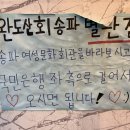 완도산회 송파 별관
송파여성문화회관을 바라보시고
국민은행 좌측으로 걸어서
오시면 됩니다!